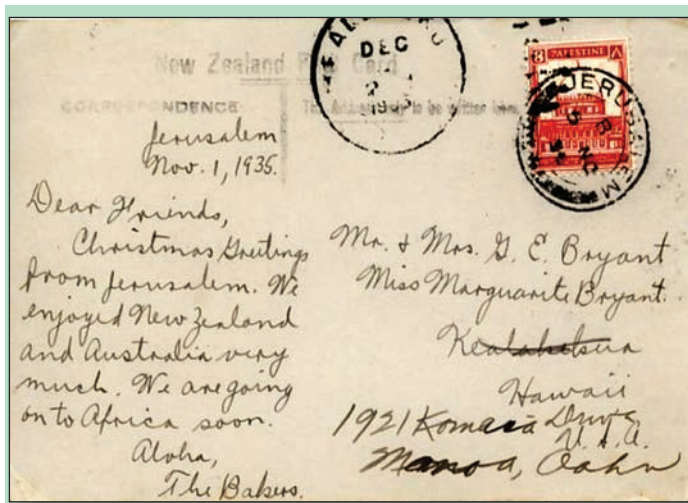 New Zealand Post Card
CORRESPONDENCE
The Address only to be written here
DEC
PALESTINE
8
JERUSALEM
Jerusalem
Nov. 1, 1935.
Dear Friends,
Christmas Greetings
from Jerusalem. We
enjoyed New Zealand
and Australia very
much. We are going
on to Africa soon.
Aloha,
The Bakers.
Mr. & Mrs. G. E. Bryant
Miss Marguerite Bryant.
Kealakekua
Hawaii
U.S.A.
1921 Komaia Drive
Manoa, Oahu